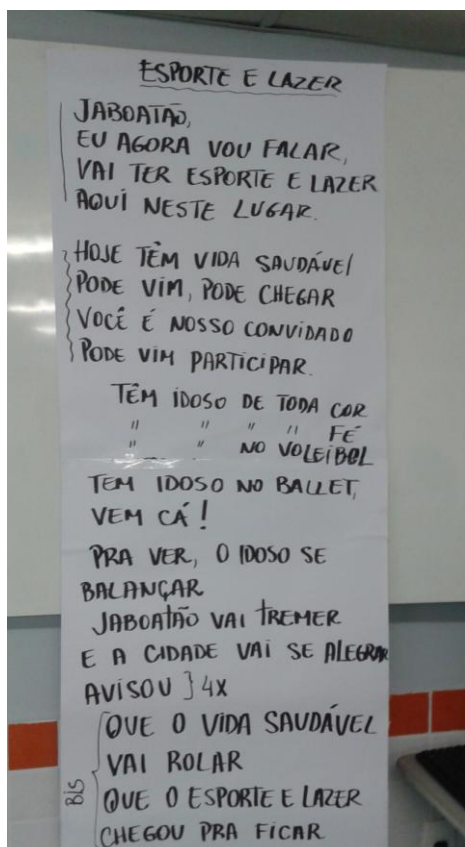 ESPORTE E LAZER
JABOATÃO,
EU AGORA VOU FALAR,
VAI TER ESPORTE E LAZER
AQUI NESTE LUGAR.
HOJE TÊM VIDA SAUDÁVEL
PODE VIM, PODE CHEGAR
VOCÊ É NOSSO CONVIDADO
PODE VIM PARTICIPAR.
TÊM IDOSO DE TODA COR
" " " " FÉ
" " NO VOLEIBOL
TEM IDOSO NO BALLET,
VEM CÁ!
PRA VER, O IDOSO SE
BALANÇAR
JABOATÃO VAI TREMER
E A CIDADE VAI SE ALEGRAR
AVISOU } 4X
BIS { QUE O VIDA SAUDÁVEL
VAI ROLAR
QUE O ESPORTE E LAZER
CHEGOU PRA FICAR